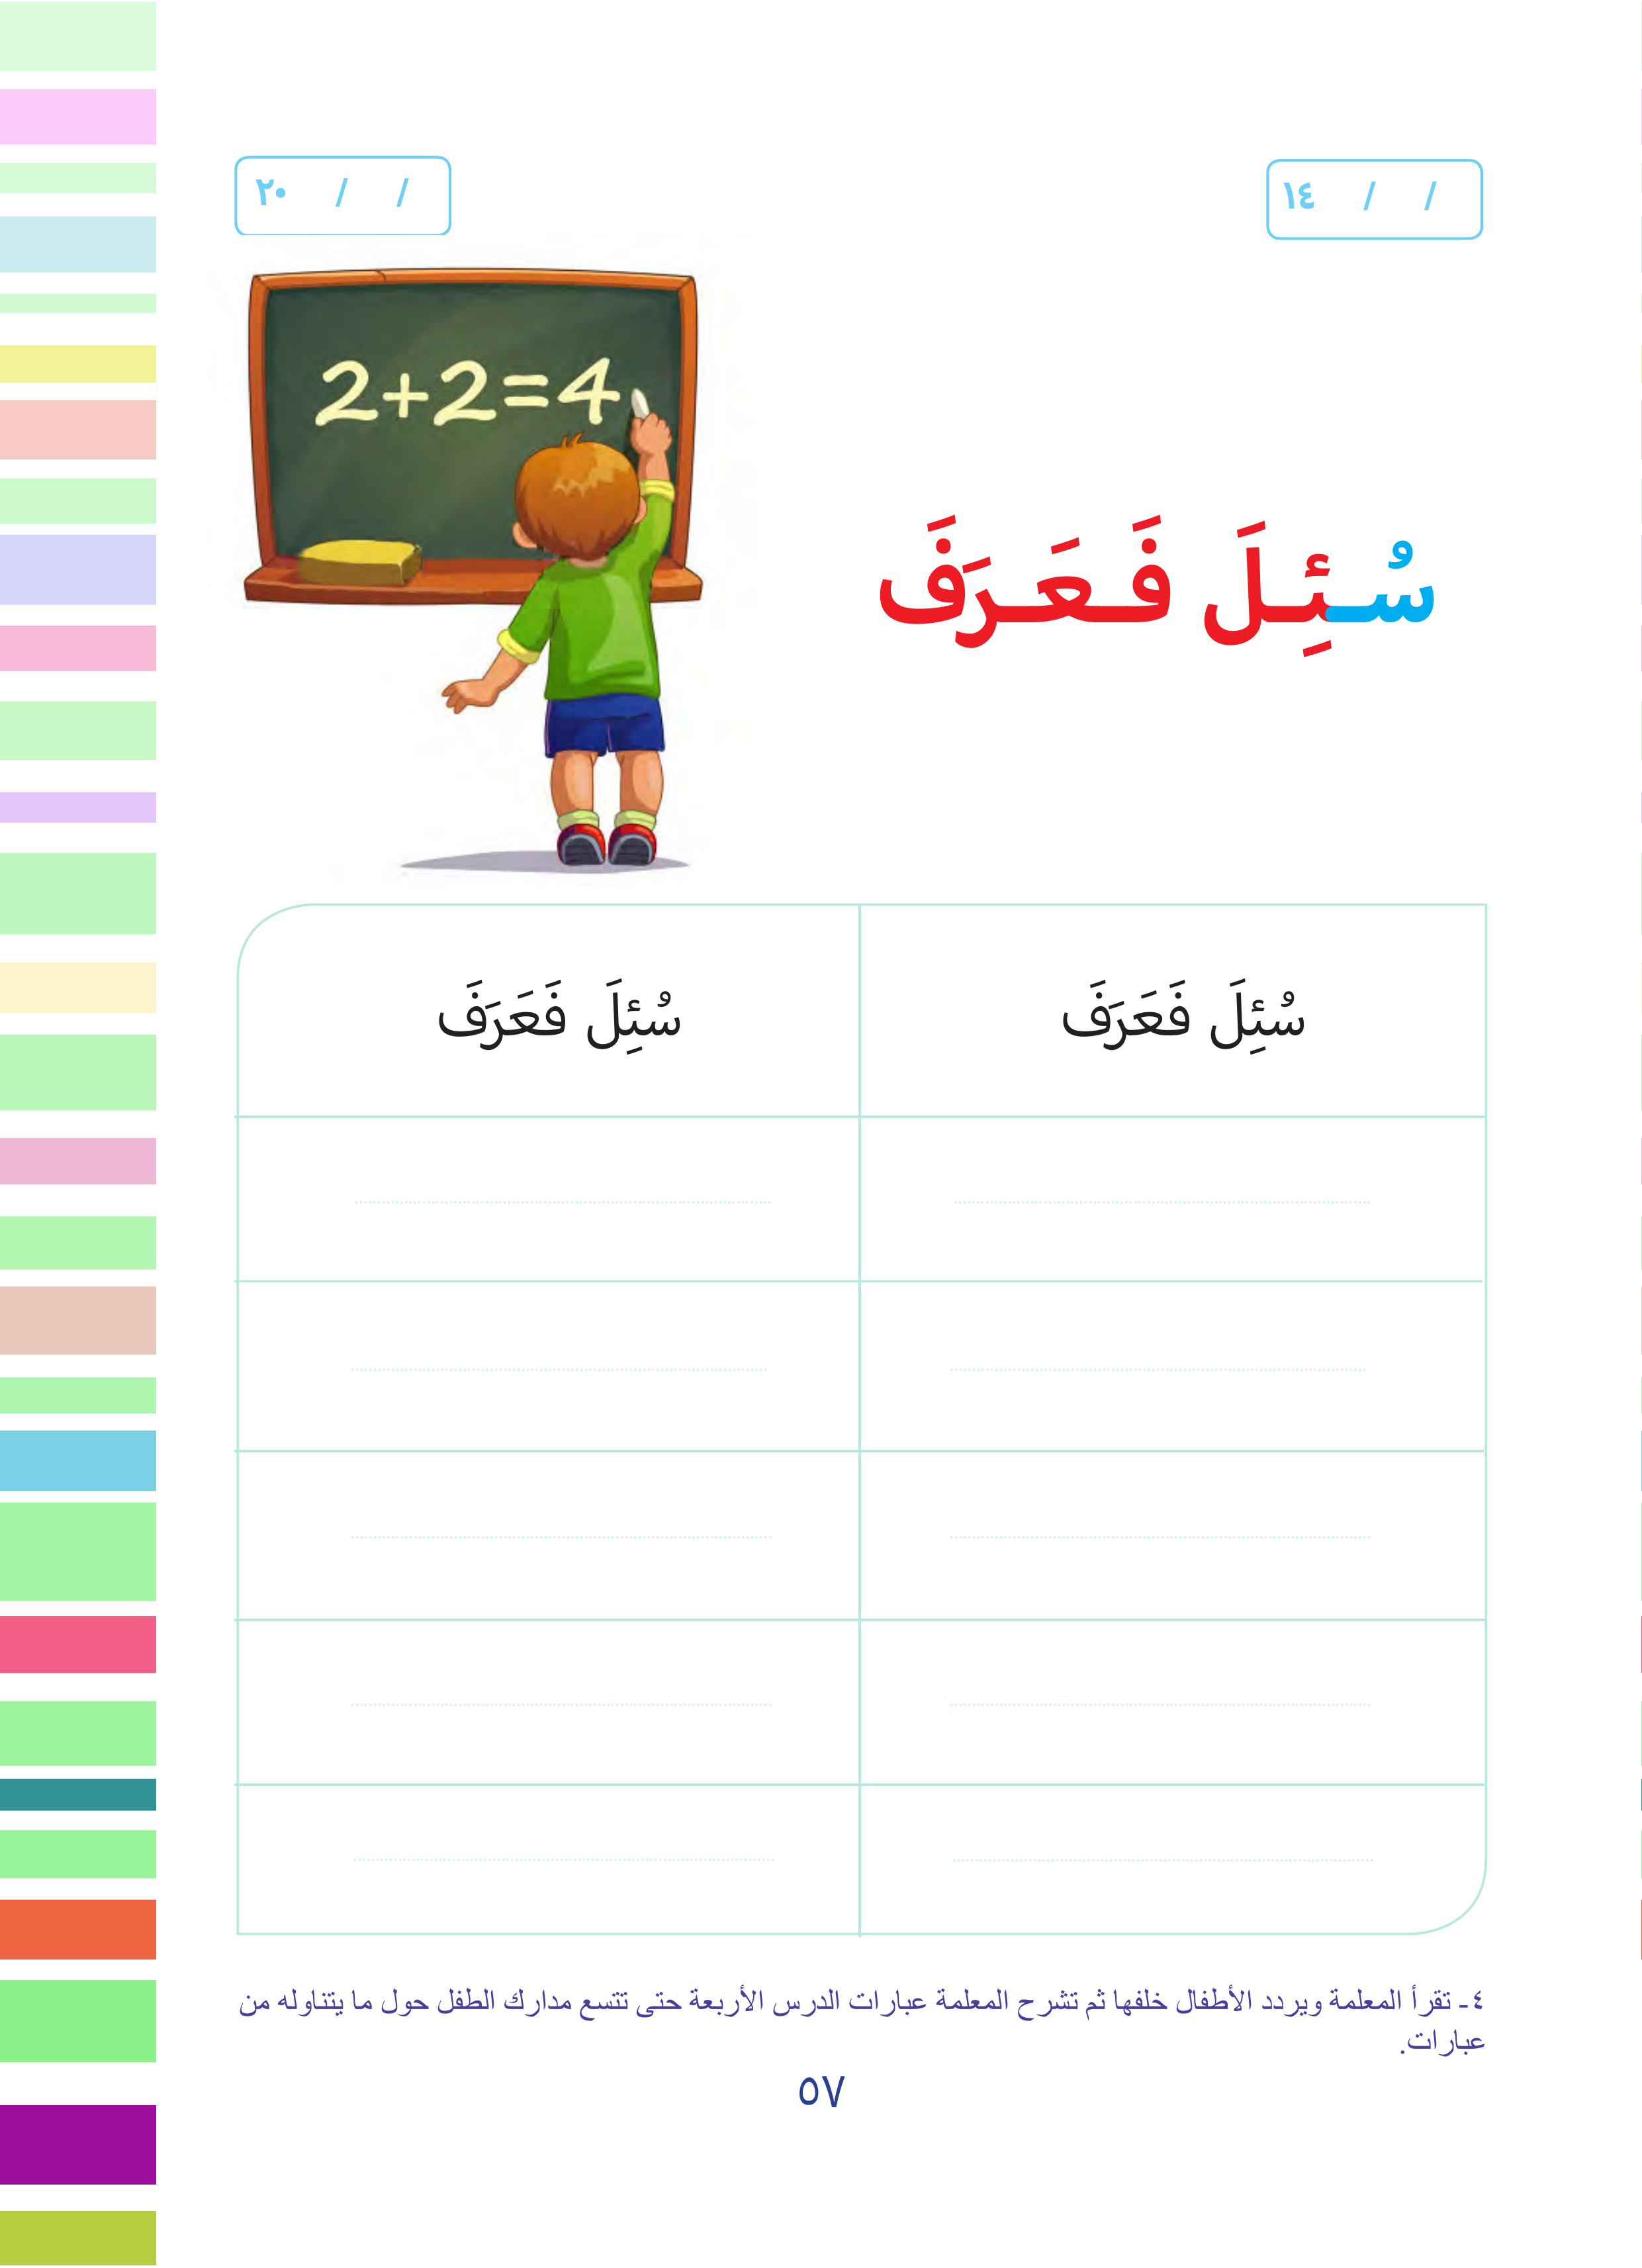 / / ١٤
/ / ٢٠
2+2=4
سُـئِـلَ فَـعَـرَفَ
سُئِلَ فَعَرَفَ
سُئِلَ فَعَرَفَ
٤- تقرأ المعلمة ويردد الأطفال خلفها ثم تشرح المعلمة عبارات الدرس الأربعة حتى تتسع مدارك الطفل حول ما يتناوله من
عبارات.
٥٧